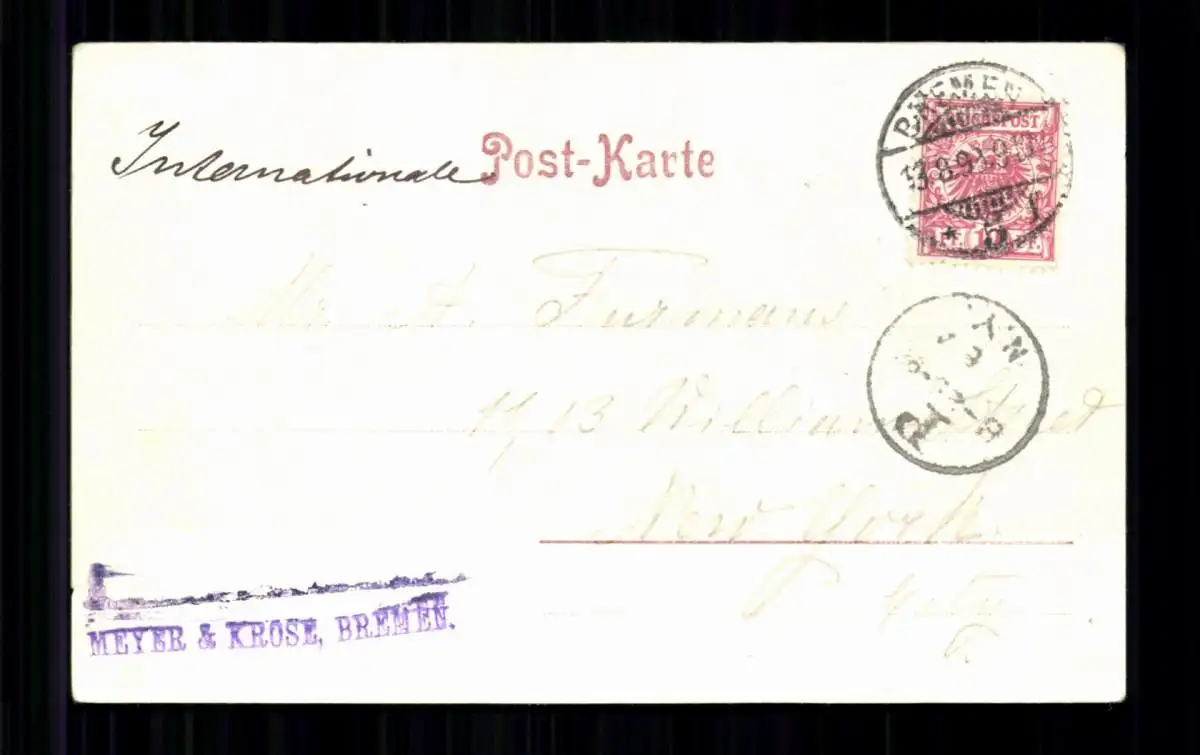 Internationale Post-Karte
BREMEN
REICHSPOST
13.8.9
* 5 f
PF. 10 PF.
Mr. A. Furmans
11/13 William Street
New York
City
N.Y.
MEYER & KROSE, BREMEN.